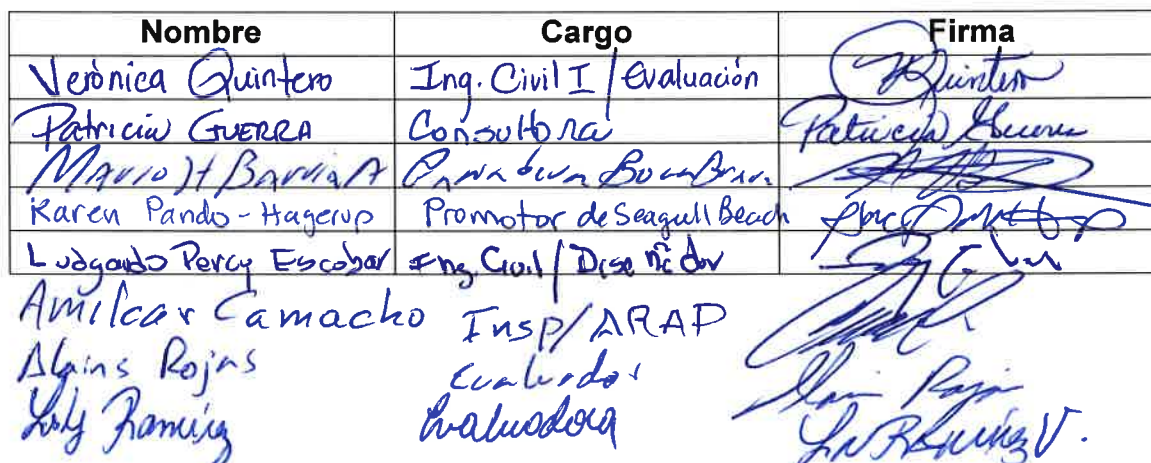 Nombre Cargo Firma
Verónica Quintero Ing. Civil I / Evaluación Quintero
Patricia GUERRA Consultora Patricia Guerra
Mario H Barría A
Karen Pando-Hagerup Promotor de Seagull Beach
Ludgardo Percy Escobar Ing. Civil / Diseñador
Amilcar Camacho Insp/ARAP
Alains Rojas Evaluador Rojas
Ramírez Evaluadora Ramírez V.